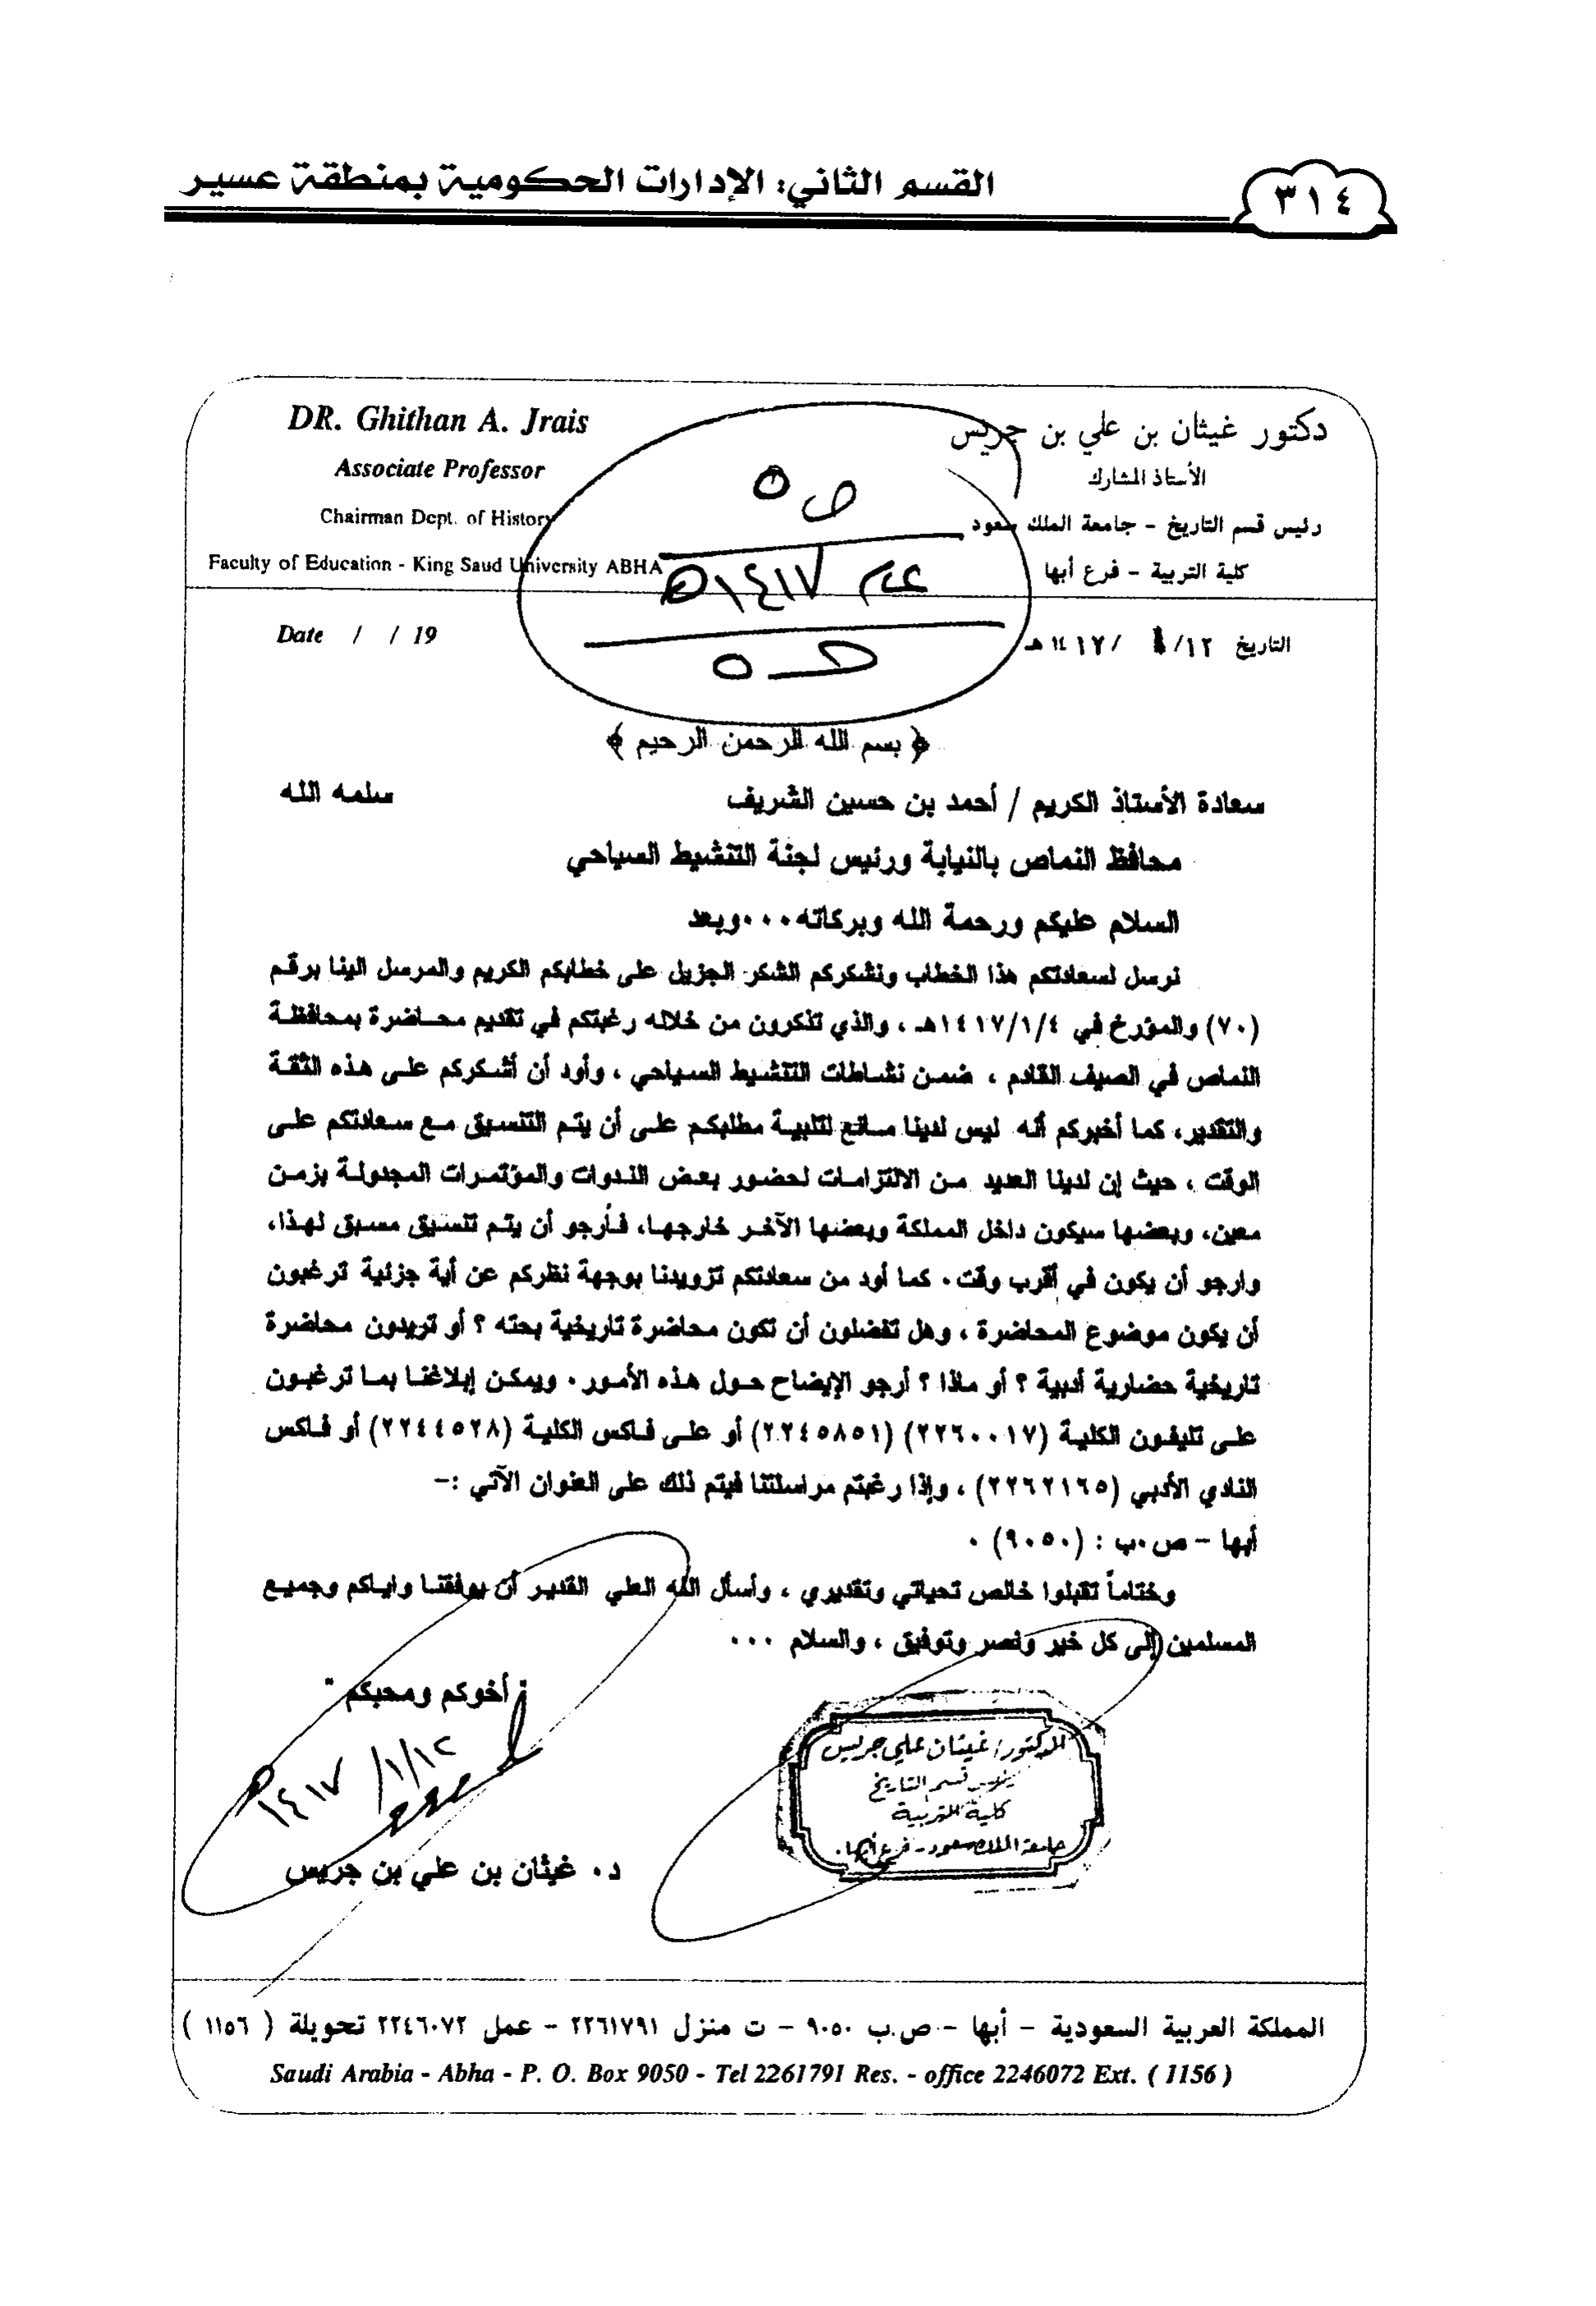 القسم الثاني: الإدارات الحكومية بمنطقة عسير
٣١٤
دكتور غيثان بن علي بن جريس
الأستاذ المشارك
رئيس قسم التاريخ - جامعة الملك سعود
كلية التربية - فرع أبها
DR. Ghithan A. Jrais
Associate Professor
Chairman Dept. of History
Faculty of Education - King Saud University ABHA
عام ١٤١٧هـ
التاريخ ١٢/ ١ /١٤١٧هـ
Date / / 19
﴿ بسم الله الرحمن الرحيم ﴾
سعادة الأستاذ الكريم / أحمد بن حسين الشريف سلمه الله
محافظ النماص بالنيابة ورئيس لجنة التنشيط السياحي
السلام عليكم ورحمة الله وبركاته٠٠٠وبعد
نرسل لسعادتكم هذا الخطاب ونشكركم الشكر الجزيل على خطابكم الكريم والمرسل الينا برقم
(٧٠) والمؤرخ في ١٤١٧/١/٤هـ ، والذي تذكرون من خلاله رغبتكم في تقديم محاضرة بمحافظة
النماص في الصيف القادم ، ضمن نشاطات التنشيط السياحي ، وأود أن أشكركم على هذه الثقة
والتقدير، كما أخبركم أنه ليس لدينا مانع لتلبية مطلبكم على أن يتم التنسيق مع سعادتكم على
الوقت ، حيث إن لدينا العديد من الالتزامات لحضور بعض الندوات والمؤتمرات المجدولة بزمن
معين، وبعضها سيكون داخل المملكة وبعضها الآخر خارجها، فأرجو أن يتم تنسيق مسبق لهذا،
وارجو أن يكون في أقرب وقت٠ كما أود من سعادتكم تزويدنا بوجهة نظركم عن أية جزئية ترغبون
أن يكون موضوع المحاضرة ، وهل تفضلون أن تكون محاضرة تاريخية بحته ؟ أو تريدون محاضرة
تاريخية حضارية أدبية ؟ أو ماذا ؟ أرجو الإيضاح حول هذه الأمور٠ ويمكن إبلاغنا بما ترغبون
على تليفون الكلية (٢٢٦٠٠١٧) (٢٢٤٥٨٥١) أو على فاكس الكلية (٢٢٤٤٥٢٨) أو فاكس
النادي الأدبي (٢٢٦٢١٦٥) ، وإذا رغبتم مراسلتنا فيتم ذلك على العنوان الآتي :-
أبها - ص٠ب : (٩٠٥٠) ٠
وختاماً تقبلوا خالص تحياتي وتقديري ، وأسأل الله العلي القدير أن يوفقنا واياكم وجميع
المسلمين إلى كل خير ونصر وتوفيق ، والسلام ٠٠٠
أخوكم ومحبكم
١٤١٧/١/١٢
د٠ غيثان بن علي بن جريس
الدكتور/ غيثان علي جريس
رئيس قسم التاريخ
كلية التربية
جامعة الملك سعود - فرع أبها.
المملكة العربية السعودية - أبها - ص.ب ٩٠٥٠ - ت منزل ٢٢٦١٧٩١ - عمل ٢٢٤٦٠٧٢ تحويلة ( ١١٥٦ )
Saudi Arabia - Abha - P. O. Box 9050 - Tel 2261791 Res. - office 2246072 Ext. ( 1156 )